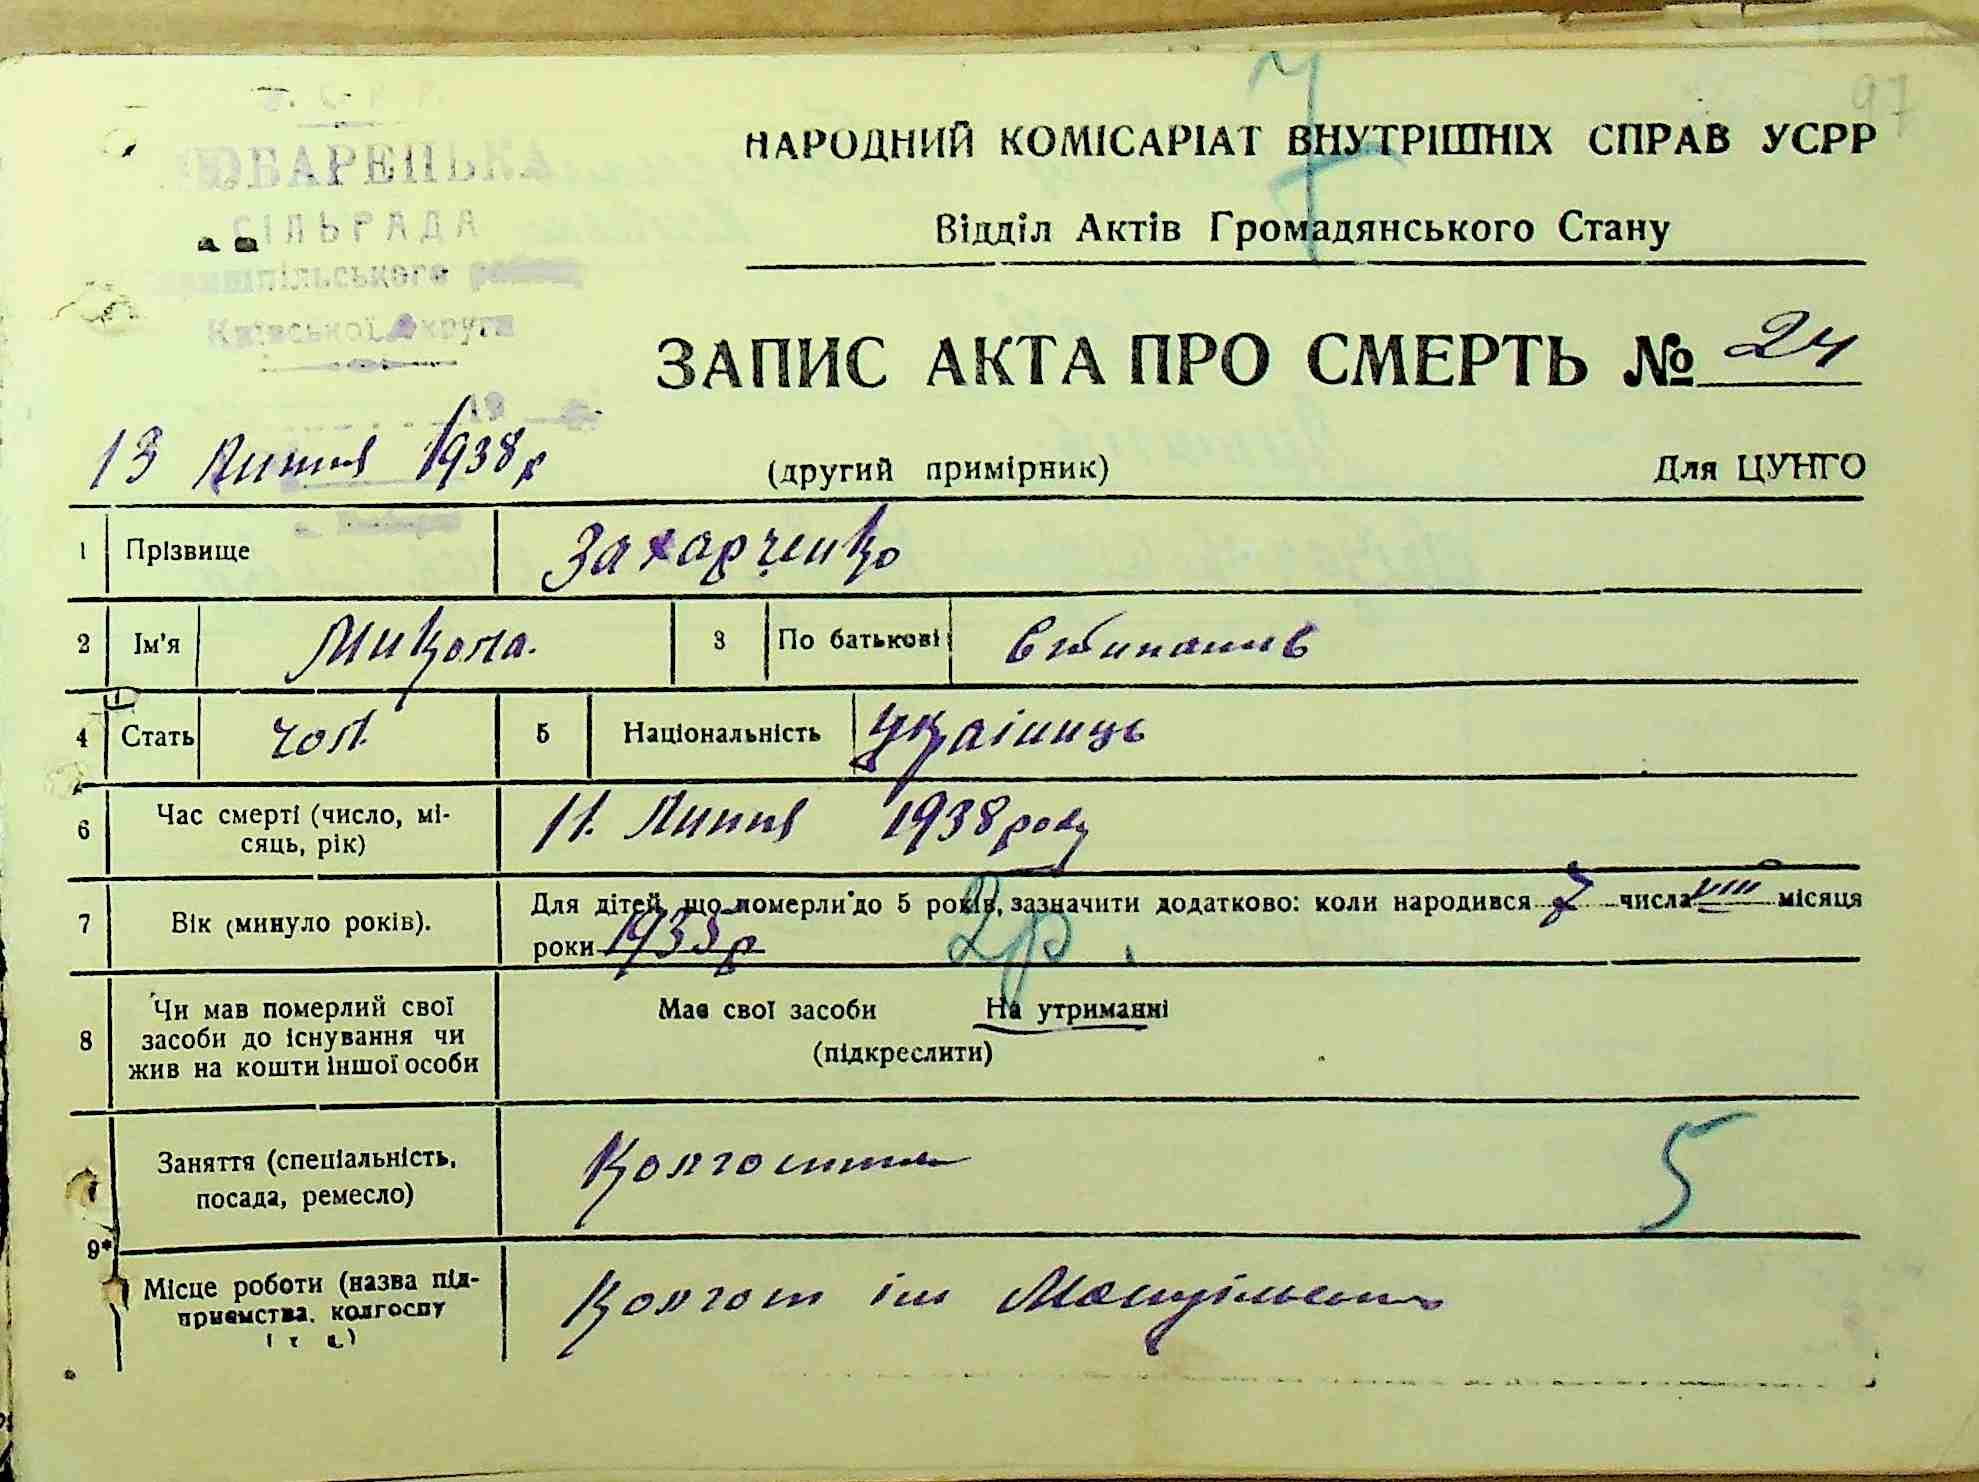 97
7
НАРОДНИЙ КОМІСАРІАТ ВНУТРІШНІХ СПРАВ УСРР
Відділ Актів Громадянського Стану
ЮБАРЕЦЬКА
СІЛЬРАДА
Київської округи
19
ЗАПИС АКТА ПРО СМЕРТЬ № 24
13 Липня 1938 р
(другий примірник)
Для ЦУНГО
1 Прізвище Захарченко
2 Ім'я Микола. 3 По батькові Степанов
4 Стать чол. 5 Національність Українць
6 Час смерті (число, мі-
сяць, рік) 11. Липня 1938 року
7 Вік (минуло років). Для дітей, що померли до 5 років, зазначити додатково: коли народився 7 числа VIII місяця
роки 1935 р 2 р.
8 Чи мав померлий свої
засоби до існування чи
жив на кошти іншої особи
Має свої засоби На утриманні
(підкреслити)
9* Заняття (спеціальність,
посада, ремесло)
5
Місце роботи (назва під-
приємства, колгоспу
і т. д.)
Колгосп ім